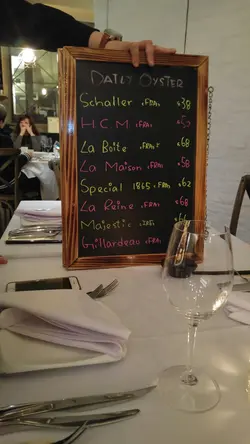 DAILY OYSTER
Schaller (FRA) $38
H.C.M (FRA)
La Boite (FRA) $68
La Maison (FRA) $58
Special 1865 (FRA) $62
La Reine (FRA) $68
Majestic
Gillardeau (FRA)